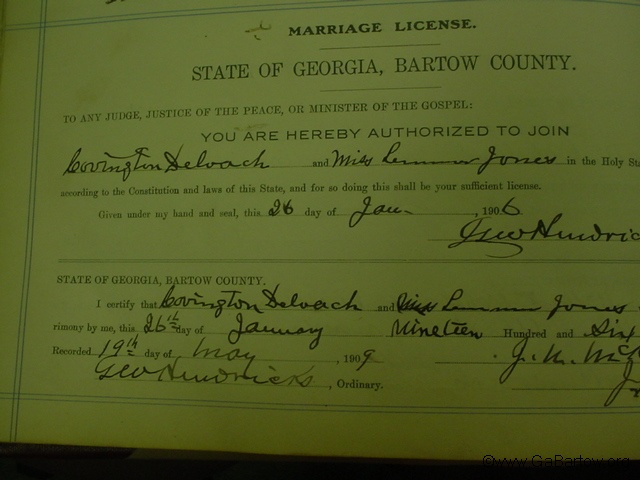 MARRIAGE LICENSE.
STATE OF GEORGIA, BARTOW COUNTY.
TO ANY JUDGE, JUSTICE OF THE PEACE, OR MINISTER OF THE GOSPEL:
YOU ARE HEREBY AUTHORIZED TO JOIN
Covington Deloach and Miss Jones in the Holy
according to the Constitution and laws of this State, and for so doing this shall be your sufficient license.
Given under my hand and seal, this 26 day of Jan- , 1906
Geo Hendric
STATE OF GEORGIA, BARTOW COUNTY.
I certify that Covington Deloach and Miss Jones
rimony by me, this 26th day of January Nineteen Hundred and Six
Recorded 19th day of May , 1909 J. M.
Geo Hendricks , Ordinary.
©www.GaBartow.org